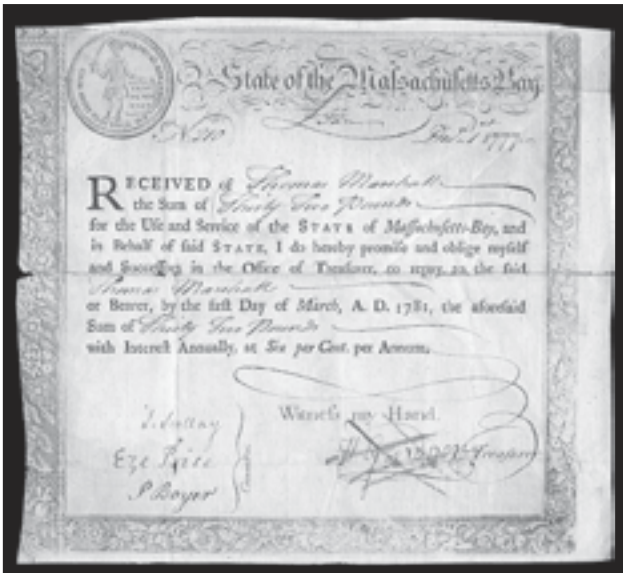 State of the Massachusetts Bay
No 210
1777
RECEIVED of Thomas Marshall
the Sum of Thirty Two Pounds
for the Use and Service of the STATE of Massachusetts-Bay, and
in Behalf of said STATE, I do hereby promise and oblige myself
and Successors in the Office of Treasurer, to repay to the said
Thomas Marshall
or Bearer, by the first Day of March, A. D. 1781, the aforesaid
Sum of Thirty Two Pounds
with Interest Annually, at Six per Cent. per Annum.
Witness my Hand.
Eze Price
P Boyer
Treasurer